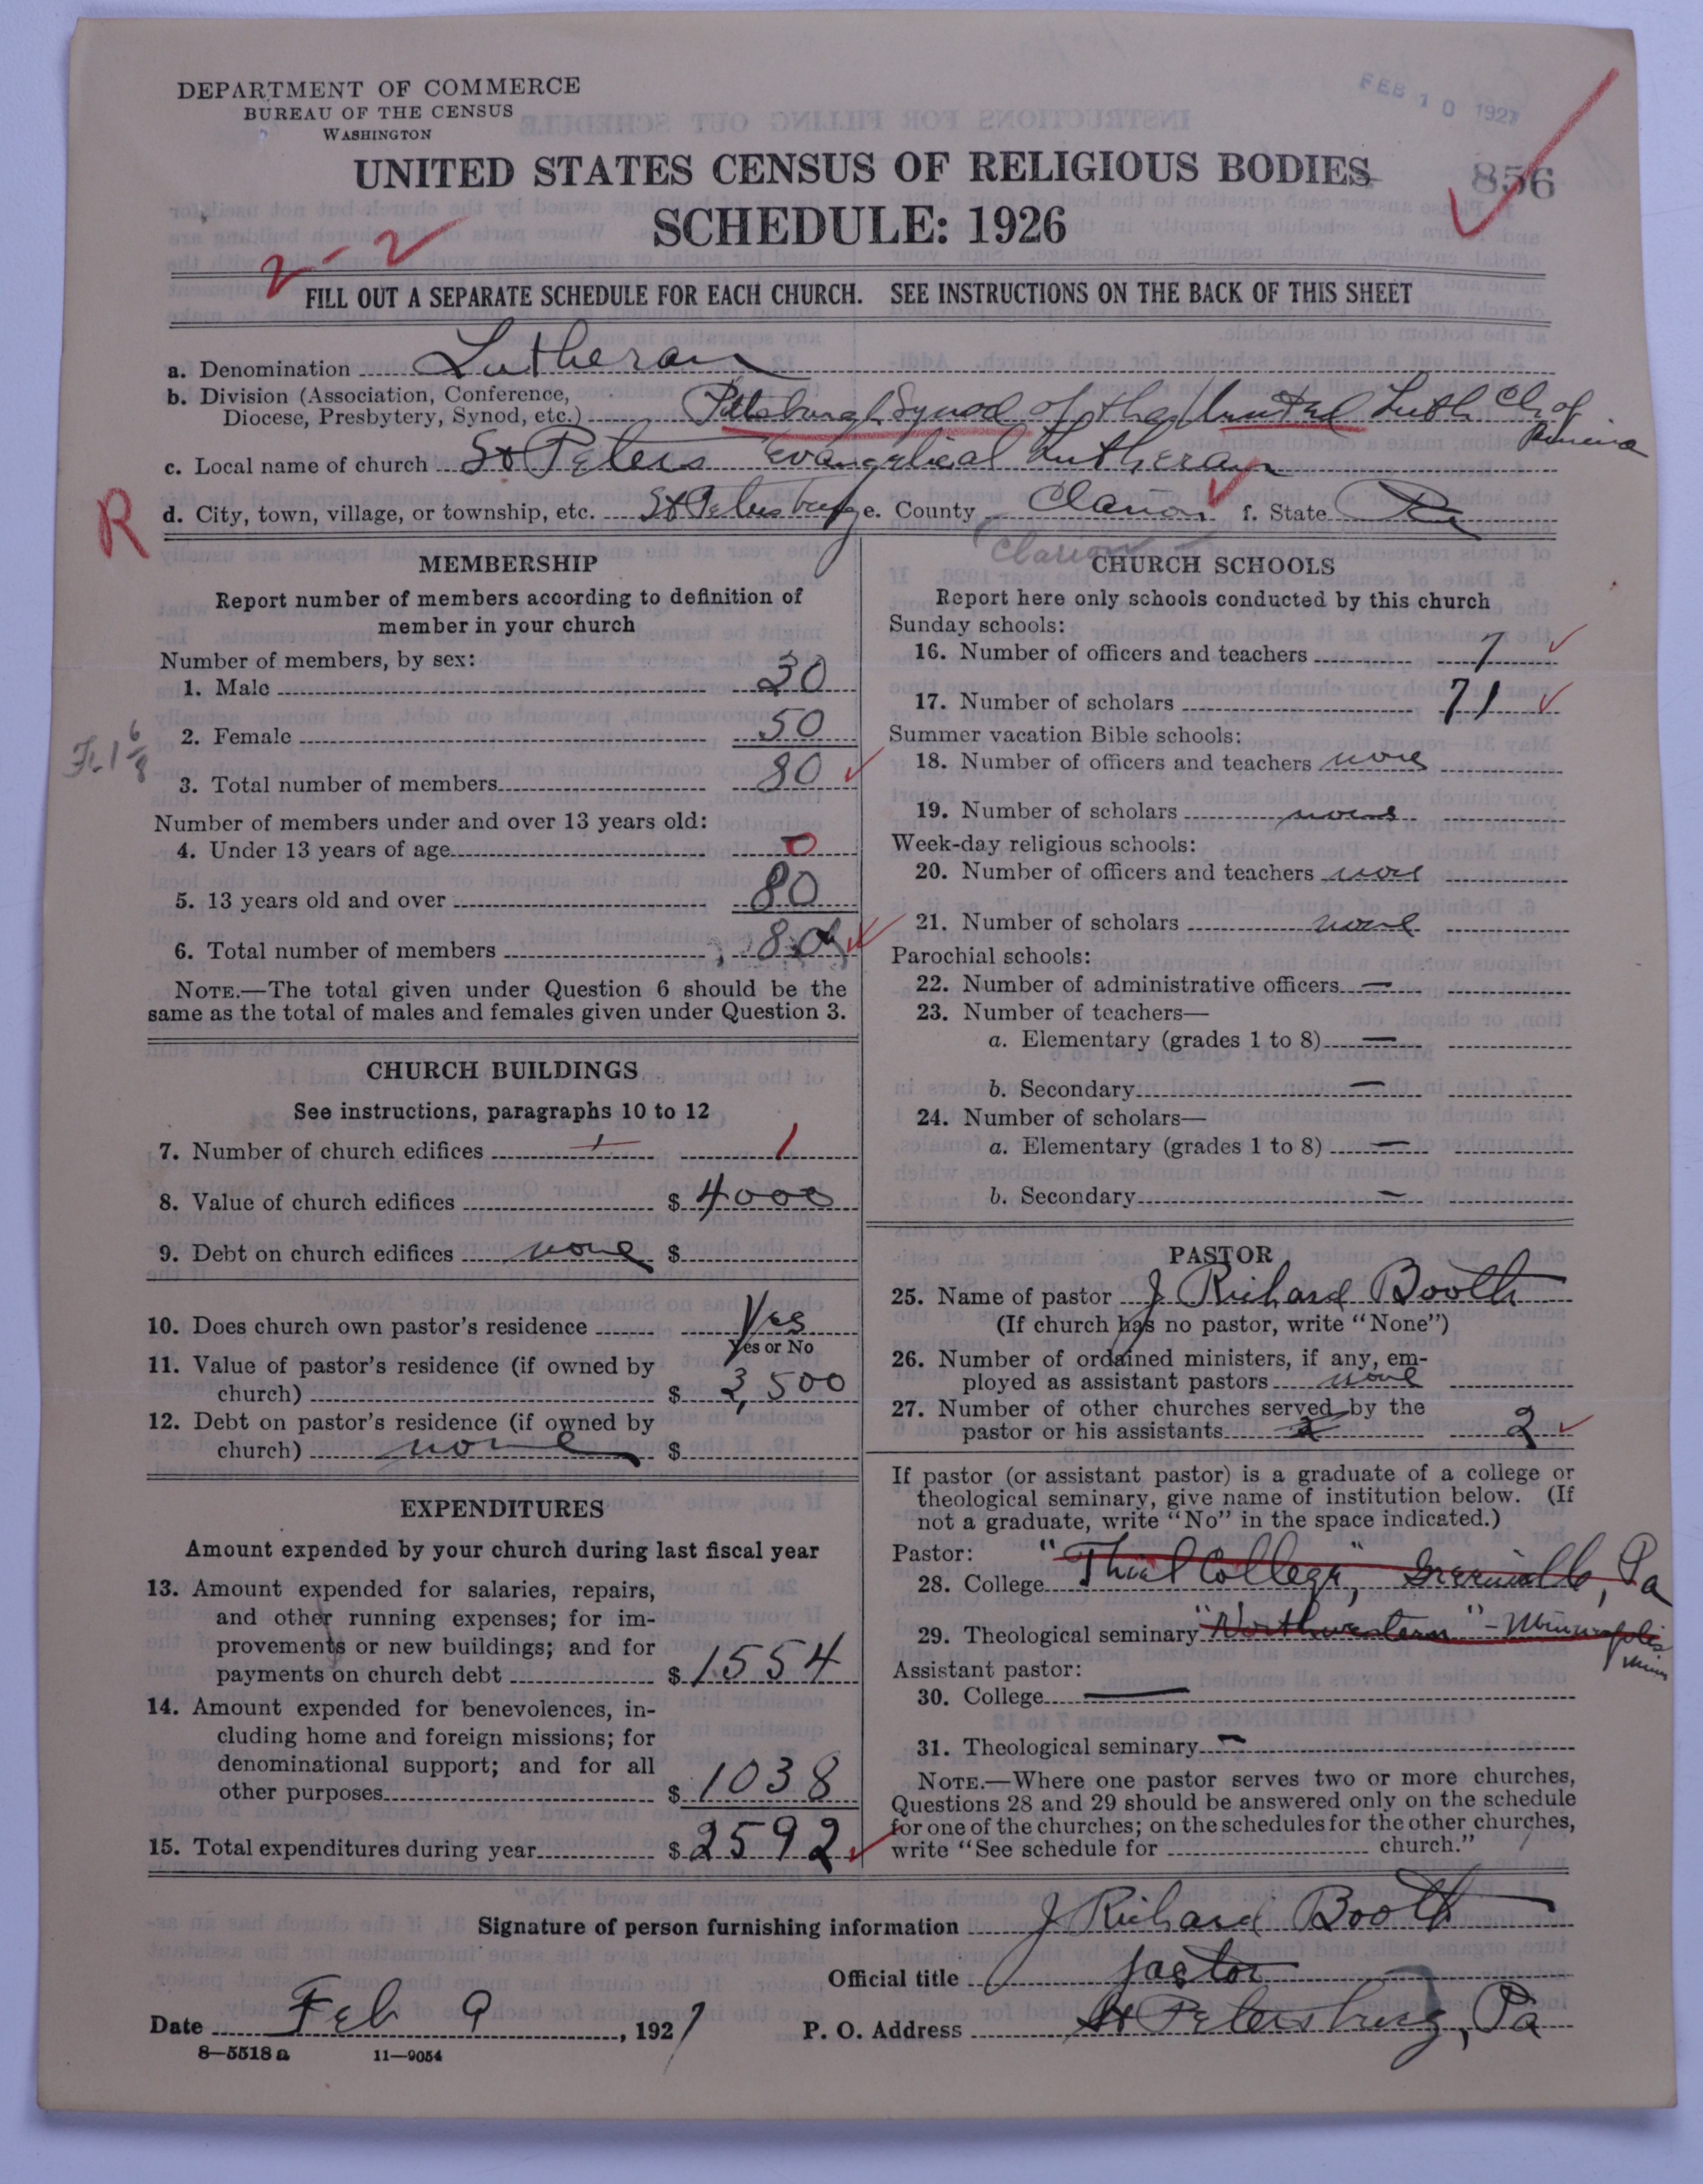 FEB 10 1927
DEPARTMENT OF COMMERCE
BUREAU OF THE CENSUS
WASHINGTON
856
UNITED STATES CENSUS OF RELIGIOUS BODIES
SCHEDULE: 1926
2-2
FILL OUT A SEPARATE SCHEDULE FOR EACH CHURCH. SEE INSTRUCTIONS ON THE BACK OF THIS SHEET
a. Denomination Lutheran
b. Division (Association, Conference,
Diocese, Presbytery, Synod, etc.) Pittsburgh Synod of the United Luth Ch of
c. Local name of church St Peters Evangelical Lutheran
R
d. City, town, village, or township, etc. St Petersburg e. County Clarion f. State Pa
Clarion
MEMBERSHIP
Report number of members according to definition of
member in your church
Number of members, by sex:
1. Male 30
2. Female 50
3. Total number of members 80
Number of members under and over 13 years old:
4. Under 13 years of age 0
5. 13 years old and over 80
6. Total number of members 80
NOTE.—The total given under Question 6 should be the
same as the total of males and females given under Question 3.
CHURCH BUILDINGS
See instructions, paragraphs 10 to 12
7. Number of church edifices 1 1
8. Value of church edifices $ 4000
9. Debt on church edifices none $
10. Does church own pastor's residence Yes
Yes or No
11. Value of pastor's residence (if owned by
church) $ 3,500
12. Debt on pastor's residence (if owned by
church) none $
EXPENDITURES
Amount expended by your church during last fiscal year
13. Amount expended for salaries, repairs,
and other running expenses; for im-
provements or new buildings; and for
payments on church debt $ 1554
14. Amount expended for benevolences, in-
cluding home and foreign missions; for
denominational support; and for all
other purposes $ 1038
15. Total expenditures during year $ 2592
CHURCH SCHOOLS
Report here only schools conducted by this church
Sunday schools:
16. Number of officers and teachers 7
17. Number of scholars 71
Summer vacation Bible schools:
18. Number of officers and teachers none
19. Number of scholars none
Week-day religious schools:
20. Number of officers and teachers none
21. Number of scholars none
Parochial schools:
22. Number of administrative officers —
23. Number of teachers—
a. Elementary (grades 1 to 8) —
b. Secondary —
24. Number of scholars—
a. Elementary (grades 1 to 8) —
b. Secondary —
PASTOR
25. Name of pastor J Richard Booth
(If church has no pastor, write "None")
26. Number of ordained ministers, if any, em-
ployed as assistant pastors none
27. Number of other churches served by the
pastor or his assistants 2 2
If pastor (or assistant pastor) is a graduate of a college or
theological seminary, give name of institution below. (If
not a graduate, write "No" in the space indicated.)
Pastor:
28. College "Thiel College", Greenville, Pa
29. Theological seminary "Northwestern" - Minneapolis
Minn
Assistant pastor:
30. College —
31. Theological seminary —
NOTE.—Where one pastor serves two or more churches,
Questions 28 and 29 should be answered only on the schedule
for one of the churches; on the schedules for the other churches,
write "See schedule for church."
Signature of person furnishing information J Richard Booth
Official title Pastor
Date Feb 9, 1927 P. O. Address St Petersburg, Pa
8—5518 a 11—9054